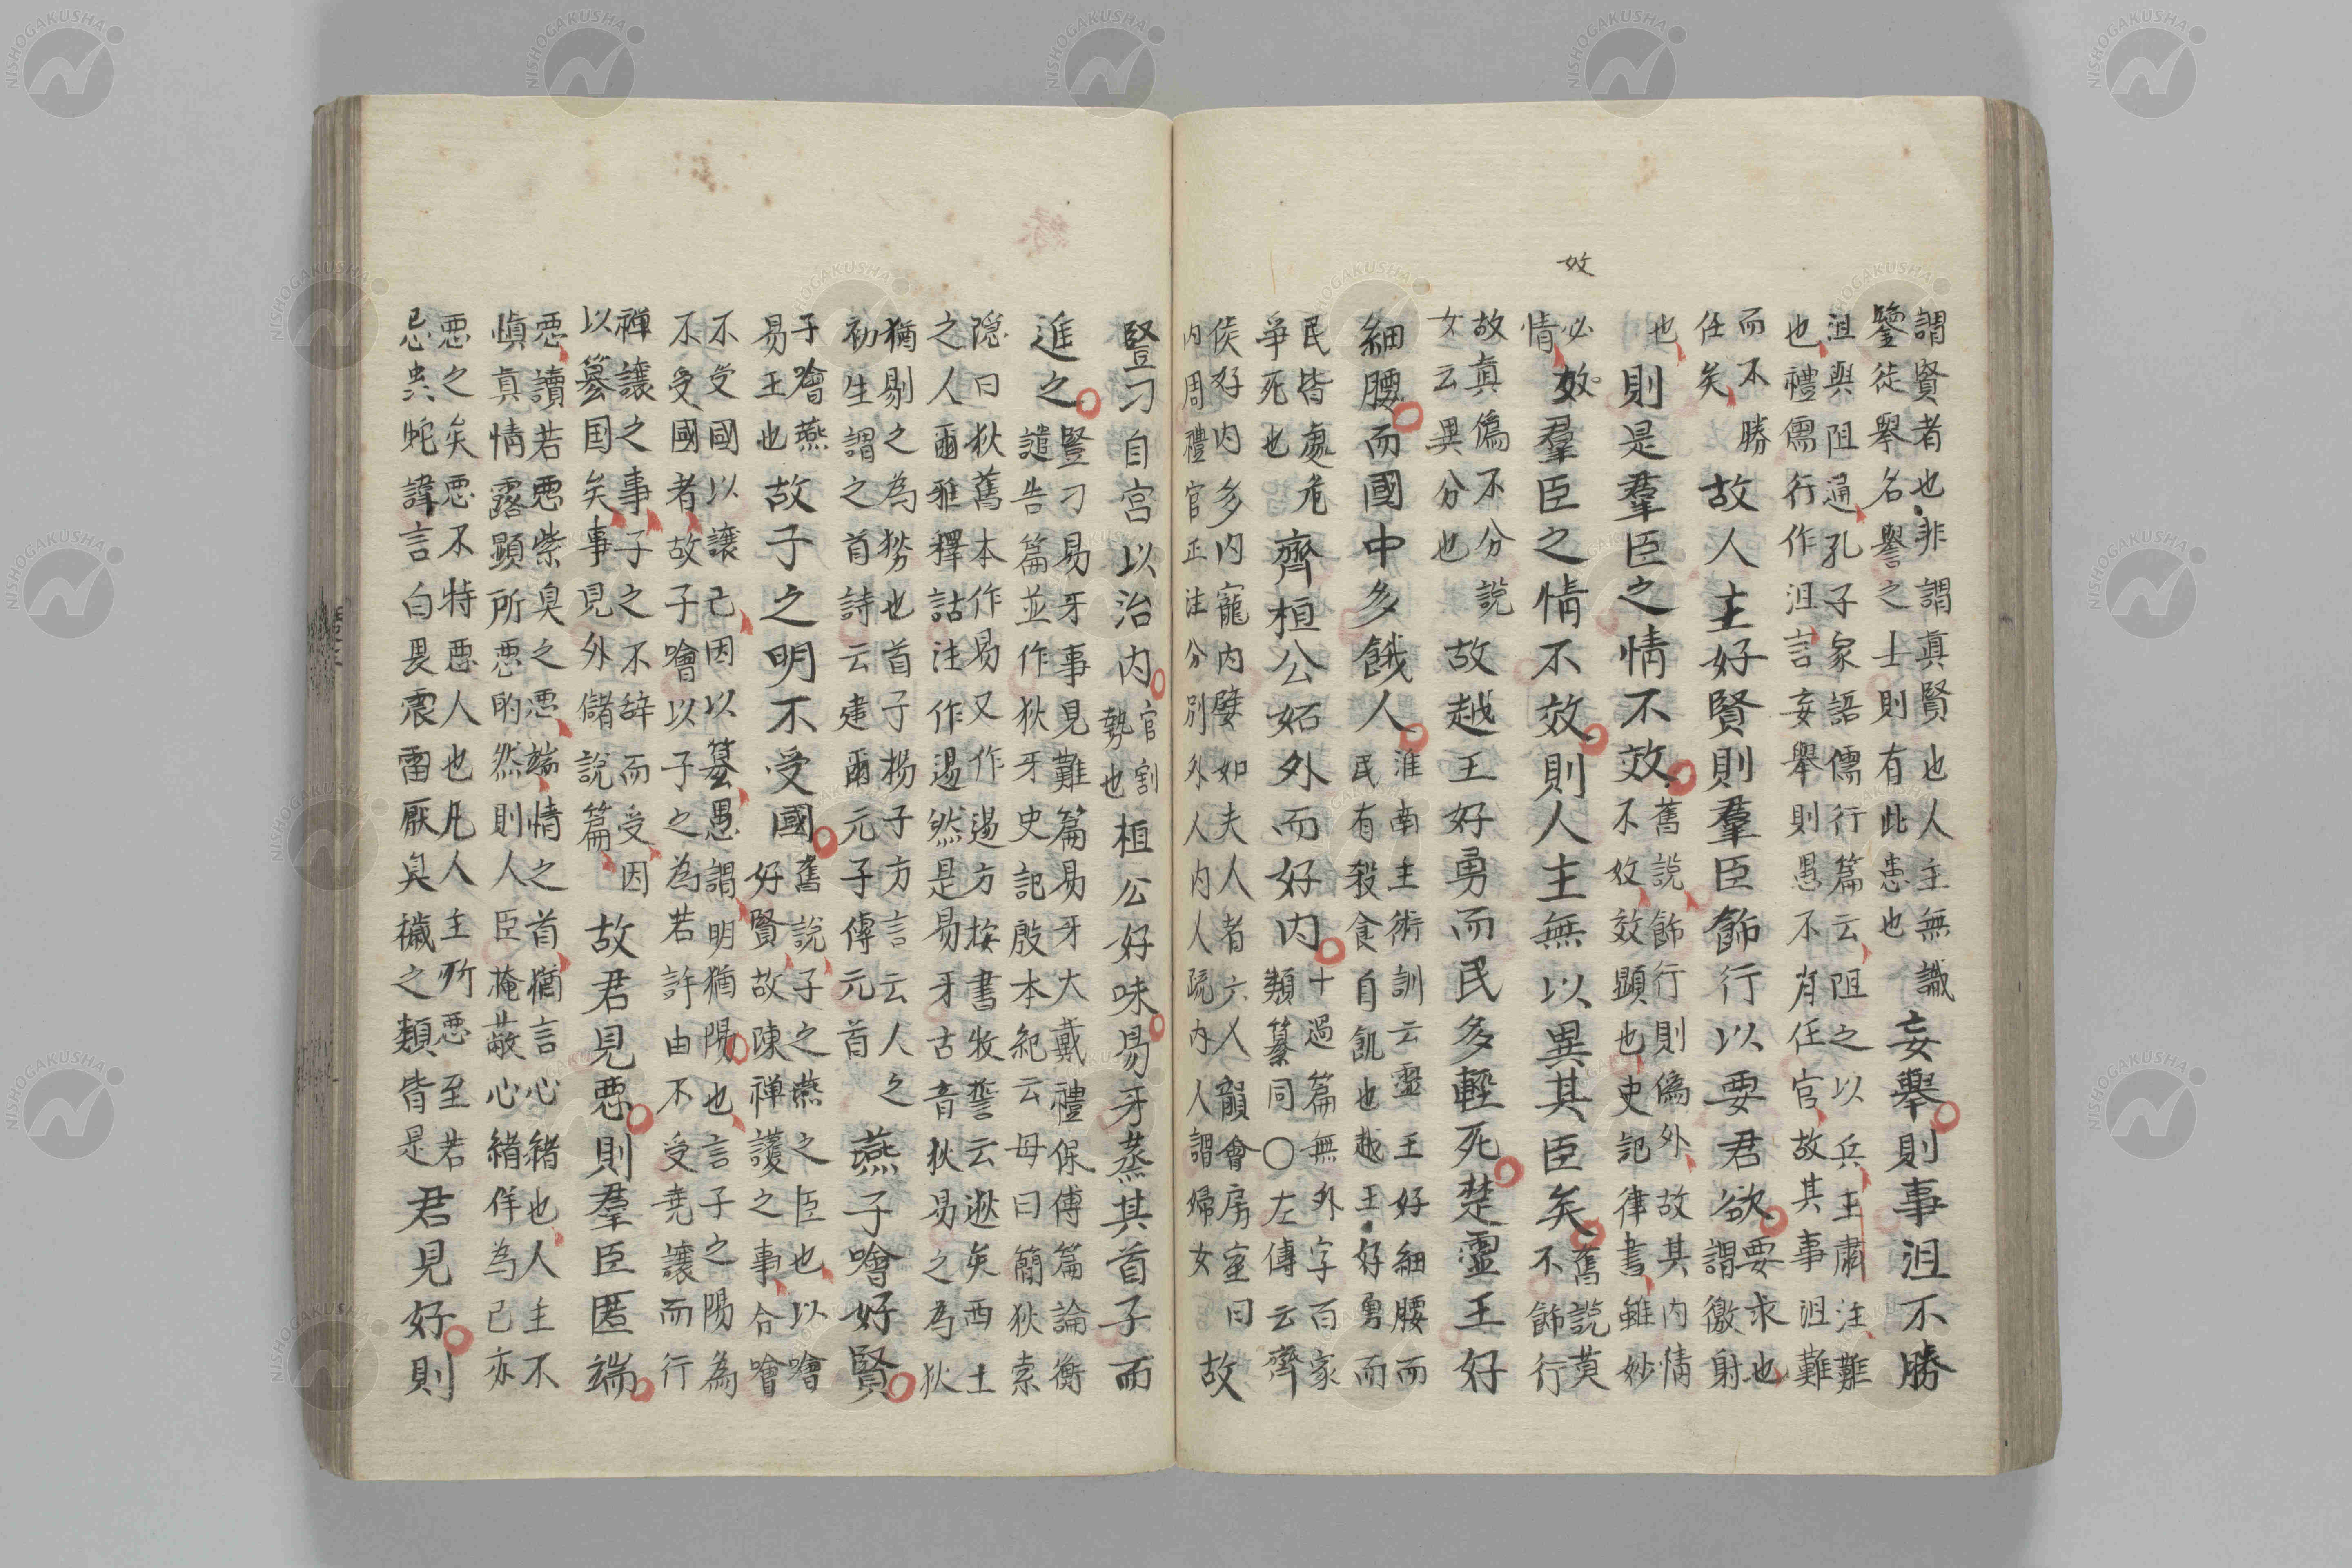 効
謂賢者也非謂真賢也人主無識
鑒徒擧名譽之士則有此患也
妄擧則事沮不勝
沮與阻通孔子家語儒行篇云阻之以兵王肅注難
也禮儒行作沮言妄擧則愚不肖任官故其事沮難
而不勝
任矣
故人主好賢則羣臣飾行以要君欲
要求也
謂徼射
也
則是羣臣之情不效
舊說飾行則偽外故其内情
不効效顯也史記律書雖妙
必効
情
羣臣之情不效則人主無以異其臣矣
舊說莫
不飾行
故真偽不分説
女云異分也
故越王好勇而民多輕死楚靈王好
細腰而國中多餓人
淮南主術訓云靈王好細腰而
民有殺食自飢也越王好勇而
民皆處危
爭死也
齊桓公妬外而好内
十過篇無外字百家
類纂同○左傳云齊
侯好内多内寵内嬖如夫人者六人韻會房室曰
内周禮官正注分別外人内人疏内人謂婦女
故
豎刁自宮以治内
官割
勢也
桓公好味易牙蒸其首子而
進之
豎刁易牙事見難篇易牙大戴禮保傅篇論衡
譴告篇並作狄牙史記殷本紀云母曰簡狄索
隠曰狄舊本作易又作逷方按書牧誓云逖矣西土
之人爾雅釋詁注作逷然是易牙古音狄易之為狄
猶剔之為𠛪也首子揚子方言云人之
初生謂之首詩云建爾元子傳元首
燕子噲好賢
子噲燕
易王也
故子之明不受國
舊說子之燕之臣也以噲
好賢故陳禅讓之事合噲
不受國以讓己因以簒愚謂明猶陽也言子之陽為
不受國者故子噲以子之為若許由不受堯讓而行
禅讓之事子之不辞而受因
以簒国矣事見外儲說篇
故君見惡則羣臣匿端
惡讀若惡紫臭之惡端情之首猶言心緒也人主不
愼真情露顯所惡的然則人臣掩蔽心緒佯為己亦
惡之矣惡不特惡人也凡人主所惡至若
忌虫蛇諱言白畏震雷厭臭穢之類皆是
君見好則